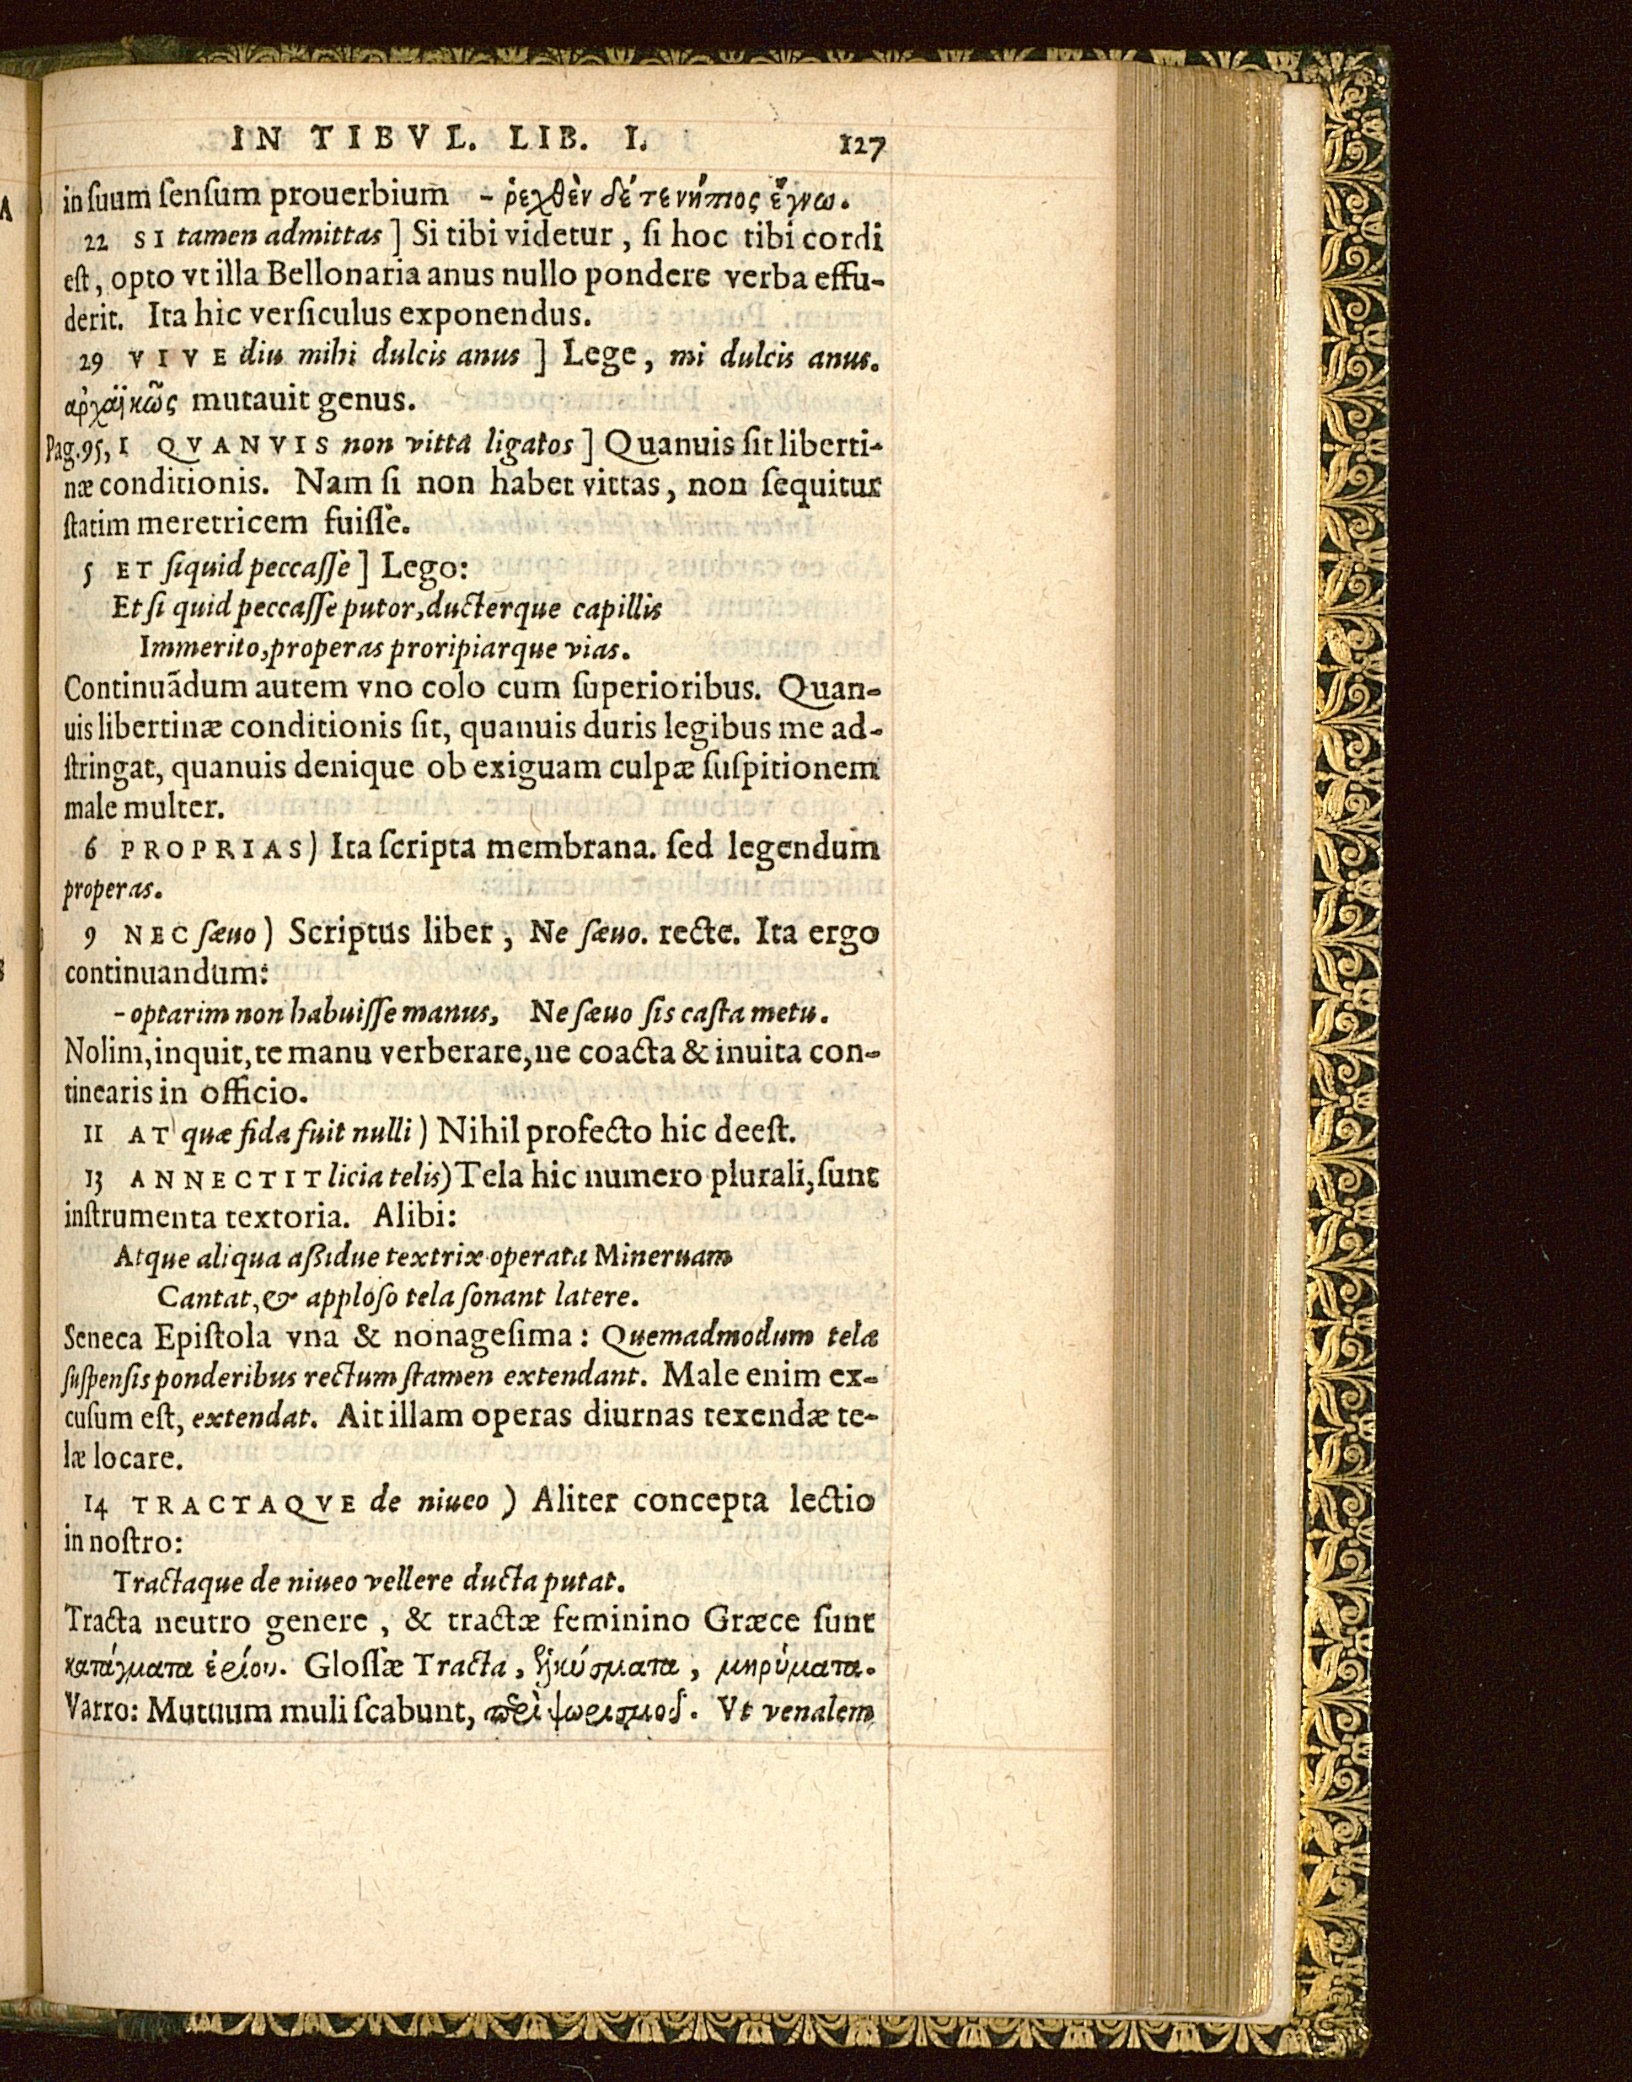 IN TIBVL. LIB. I. 127
in ſuum ſenſum prouerbium - ῥεχθὲν δέ τε νήπιος ἔγνω.
22 SI tamen admittas ] Si tibi videtur, ſi hoc tibi cordi
eſt, opto vt illa Bellonaria anus nullo pondere verba effu-
derit. Ita hic verſiculus exponendus.
29 VIVE diu mihi dulcis anus ] Lege, mi dulcis anus.
ἀρχαϊκῶς mutauit genus.
Pag. 95, 1 QVANVIS non vitta ligatos ] Quanuis ſit liberti-
næ conditionis. Nam ſi non habet vittas, non ſequitur
ſtatim meretricem fuiſſe.
5 ET ſiquid peccaſſe ] Lego:
Et ſi quid peccaſſe putor, ducterque capillis
Immerito, properas proripiarque vias.
Continuãdum autem vno colo cum ſuperioribus. Quan-
uis libertinæ conditionis ſit, quanuis duris legibus me ad-
ſtringat, quanuis denique ob exiguam culpæ ſuſpitionem
male multer.
6 PROPRIAS) Ita ſcripta membrana. ſed legendum
properas.
9 NEC ſæuo) Scriptus liber, Ne ſæuo. recte. Ita ergo
continuandum:
- optarim non habuiſſe manus, Ne ſæuo ſis caſta metu.
Nolim, inquit, te manu verberare, ne coacta & inuita con-
tinearis in officio.
11 AT quæ fida fuit nulli) Nihil profecto hic deeſt.
13 ANNECTIT licia telis) Tela hic numero plurali, ſunt
inſtrumenta textoria. Alibi:
Atque aliqua aßidue textrix operata Mineruam
Cantat, & apploſo tela ſonant latere.
Seneca Epiſtola vna & nonageſima: Quemadmodum telæ
ſuſpenſis ponderibus rectum ſtamen extendant. Male enim ex-
cuſum eſt, extendat. Ait illam operas diurnas texendæ te-
læ locare.
14 TRACTAQVE de niueo ) Aliter concepta lectio
in noſtro:
Tractaque de niueo vellere ducta putat.
Tracta neutro genere, & tractæ feminino Græce ſunt
κατάγματα ἐρίου. Gloſſæ Tracta, ἑλκύσματα, μηρύματα.
Varro: Mutuum muli ſcabunt, περὶ ψωρισμοῦ. Vt venalem